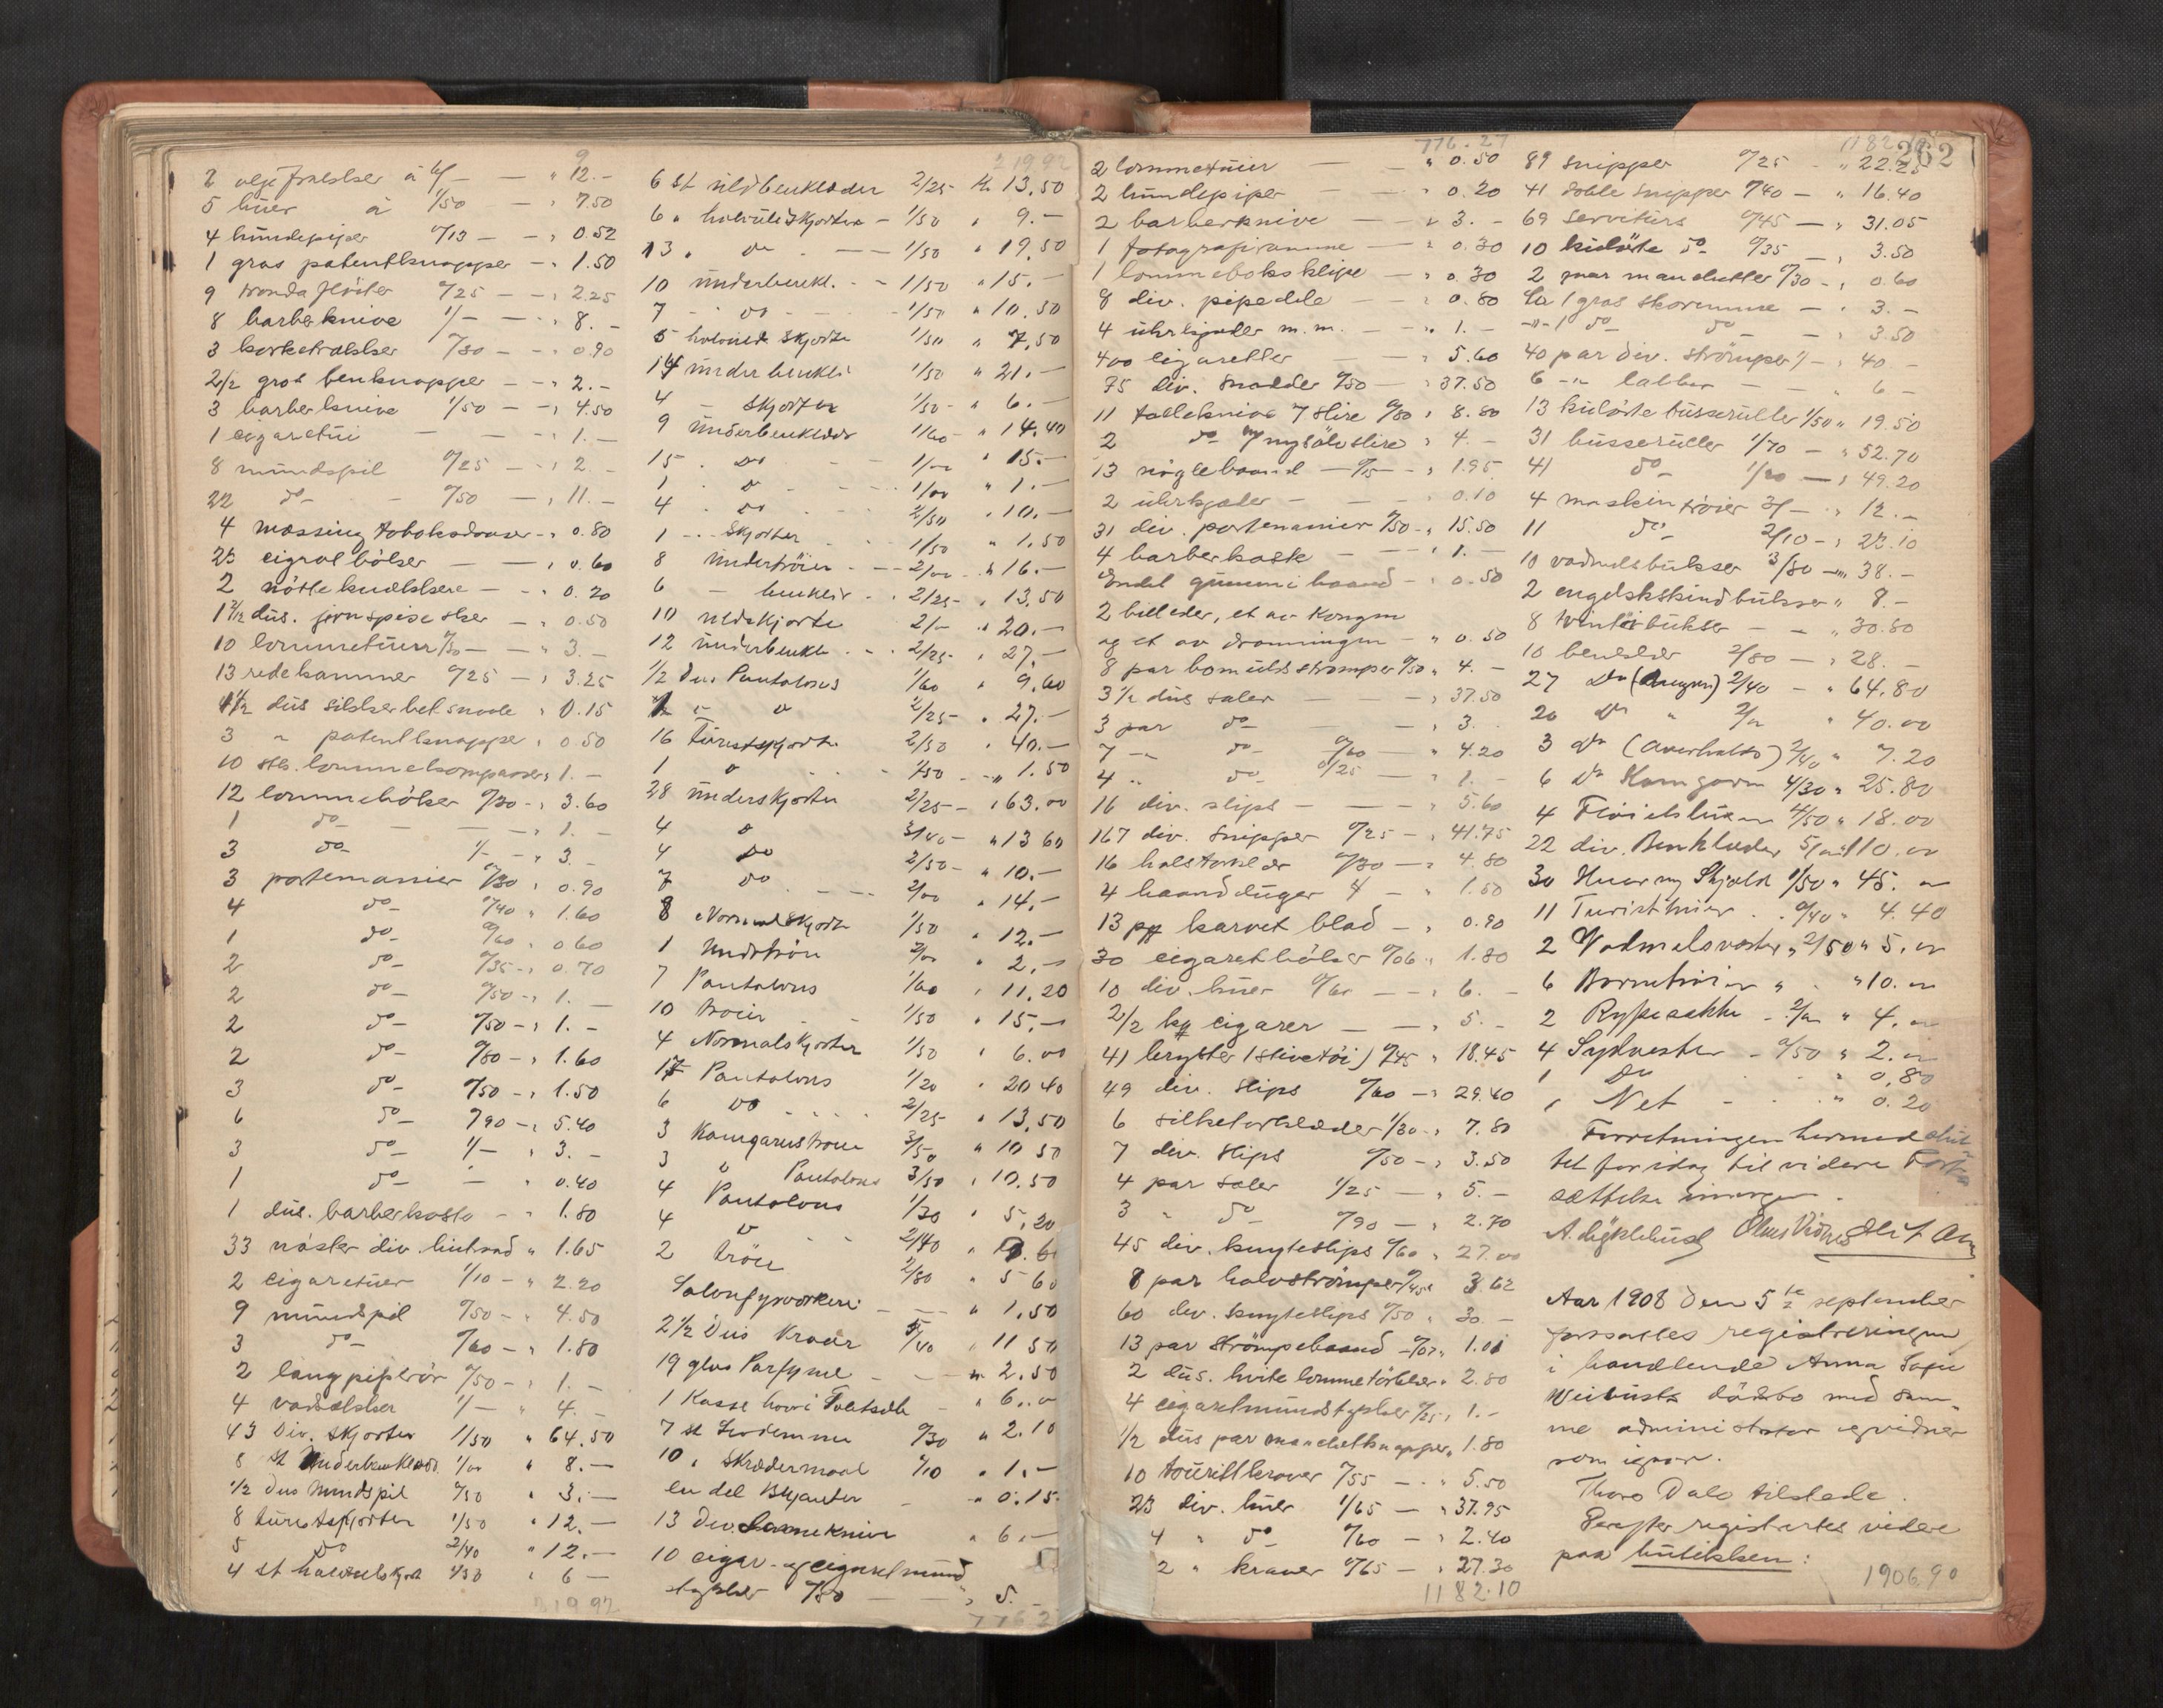 9
2 oljefrakker á 6/- — " 12.-
5 huer á 1/50 — " 7.50
4 hundepiper 0/13 — " 0.52
1 gros patentknapper — " 1.50
9 fløiter 0/25 — " 2.25
8 barberknive 1/- — " 8.-
3 korketrækker 0/30 — " 0.90
2 1/2 gros benknapper — " 2.-
3 barberknive 1/50 — " 4.50
1 cigaretui — " 1.-
8 mundspil 0/25 — " 2.-
22 do- 0/50 — " 11.-
4 messing tobaksdaaser - " 0.80
23 cigarethölser — " 0.60
2 nötteknækkere — " 0.20
1 1/2 dus. jernspiseskeer — " 0.50
10 lommetuier 0/30 — " 3.-
13 redekammer 0/25 — " 3.25
dus sikkerhetsnaale " 0.15
3 " patentknapper " 0.50
10 stk. lommekompasser " 1.-
12 lommebøker 0/30 - " 3.60
1 do- — " 1.-
3 do- 1/- — " 3.-
3 portemonnier 0/30 " 0.90
4 do- 0/40 " 1.60
1 do- 0/60 " 0.60
2 do- 0/35 - " 0.70
2 do- 0/50 - " 1.-
2 do- 0/50 - " 1.-
2 do- 0/80 - " 1.60
3 do- 0/50 - " 1.50
6 do- 0/90 - " 5.40
3 do- 1/- " 3.-
1 do- - " 0.40
1 dus. barberkoste - " 1.80
33 nöster div. " 1.65
2 cigaretuier 1/10 - " 2.20
9 mundspil 0/50 - " 4.50
3 do- 0/60 - " 1.80
2 lang piperör 0/50 - " 1.-
4 1/- " 4.-
43 Div. Skjorter 1/50 " 64.50
8 st Underbenklæder 1/00 " 8.-
1/2 Dus Mundspil 0/50 " 3.-
8 turistskjorter 1/50 " 12.-
5 do 2/40 " 12.-
4 st 1/50 " 6-
219.92
219.92
6 st uldbenklæder 2/25 Kr 13,50
6 " bolsuldskjorter - 1/50 " 9.-
13 " do - 1/50 " 19.50
10 underbenkl. - 1/50 " 15.-
7 - do - 1/50 " 10.50
5 skjorte 1/50 " 7,50
14 underbenkl 1/50 " 21.-
4 - Skjorter 1/50 " 6.-
9 Underbenklæder 1/60 " 14.40
15 " do 1/00 " 15.-
1 " do 1/00 " 1.-
4 " do 2/50 " 10.-
1 - Skjorter 1/50 " 1.50
8 Undertröier 2/00 " 16.-
6 - benklær 2/25 " 13.50
10 uldskjorte 2/- " 20.-
12 underbenkl 2/25 " 27.-
1/2 Dus Pantalons 1/60 " 9,60
1 " " 2/25 " 27.-
16 Turistskjorter 2/50 " 40.-
1 " 1/50 " 1.50
28 underskjorter 2/25 " 63.00
4 " 3/40 " 13.60
4 Do 2/50 " 10.-
7 Do 2/00 " 14.-
8 Normalskjorter 1/50 " 12.-
1 Undertröie 2/00 " 2.-
7 Pantalons 1/60 " 11,20
10 tröier 1/50 " 15.-
4 Normalskjorter 1/50 " 6.00
17 Pantalons 1/20 " 20 40
6 Do 2/25 " 13.50
3 Kamgarnstroier 3/50 " 10 50
3 " Pantalons 3/50 " 10.50
4 Pantalons 1/30 " 5,20
4 " 2/40
2 tröier 2/80 " 5 60
" 1,50
2 1/2 Dus Kraver " 11 50
19 glas Parfyme " 2.50
1 Kasse " 6.00
7 st 0/30 " 2.10
10 " Skrædermaal 0/10 " 1.-
en del " 0.15
13 Dev. " 6.-
10 cigar- og cigaretmund
stykker 0/50 — " 5.-
776.2
776.27
2 lommetuier — " 0.50
2 hundepiper — " 0.20
2 barberknive — " 3.-
1 fotografiramme — " 0.30
1 lommeboksklipe — " 0.30
8 div. pipedele — " 0.80
4 uhrkjæder m.m. — " 1.-
400 cigaretter — " 5.60
75 div. snadder 0/50 — " 37.50
11 tolleknive 7 slire 0/80 " 8.80
2 do m/ nysölvslire " 4.-
13 nöglebaand — 0/15 - " 1.95
2 uhrkjæder — " 0.10
31 div. portemonnier 0/50 - " 15.50
4 barberkoste — " 1.-
Endel gummibaand - " 0.50
2 billeder, et av Kongen
og et av dronningen - " 0.50
8 par bomuldsstrømper 0/50 " 4.-
3 1/2 dus saler — " 37.50
3 par do- " 3.
7 -"- do- 0/60 " 4.20
4 " do- 0/25 — " 1.-
16 div. slips — " 5.60
167 div. snipper 0/25 - " 41.75
16 halstørklær 0/30 — " 4.80
4 haandduger — " 1.50
13 pk karvet blad — " 0.90
30 cigarethölser 0/06 " 1.80
10 div. huer 0/60 — " 6.-
2/2 ks cigarer — " 5.-
41 bryster (stivetöi) 0/45 " 18.45
49 div. slips 0/60 - " 29.40
6 silketørklæder 1/30 - " 7.80
7 div. slips 0/50 - " 3.50
4 par saler 1/25 — " 5.-
3 " do- 0/90 — " 2.70
45 div. knyteslips 0/60 " 27.00
8 par halvströmper 0/45 " 3.62
60 div. knyteslips 0/50 " 30.-
13 par strömpebaand - 0/07 " 1.01
2 dus. hvite lommetörklær " 2.80
4 cigaretmundstykker 0/25 " 1.-
1/2 dus par manchetknapper " 1.80
10 touristkraver 0/55 — " 5.50
23 div. huer 1/65 — " 37.95
4 " do 0/60 — " 2.40
2 " kraver 0/65 — " 27.30
1182.10
1182.10
262
89 snipper 0/25 " 22.25
41 doble snipper 0/40 — " 16.40
69 serviturs 0/45 — " 31.05
10 kulörte do- 0/35 — " 3.50
2 par manchetter 0/30 - " 0.60
Ca 1 gros skoremme — " 3.-
-"- 1 do- do- — " 3.50
40 par div. strömper 1/ - " 40 -
6 -"- labber — " 6 -
13 kulörte busseruller 1/50 " 19.50
31 busseruller 1/70 — " 52.70
41 do- 1/20 — " 49.20
4 maskintröier 3/- " 12.-
11 do- 2/10 - " 23.10
10 vadmelsbukser 3/80 — " 38.-
2 engelskskindbukser " 8.-
8 vinterbukser — " 30.80
10 benklær 2/80 — " 28.-
27 Do 2/40 — " 64.80
20 Do " 2/00 " 40.00
3 do (Overhalls) 2/40 " 7.20
6 Do Kamgarn 4/30 " 25.80
4 Fløielsbuxer 4/50 " 18.00
22 div. Benklæder 5/00 " 110.00
30 Huer m/ Skjold 1/50 " 45.00
11 Turisthuer 0/40 " 4.40
2 Vadmelsvester " 2/50 " 5.00
6 Barnetröier " " 10.00
2 Rypesække - 2/00 " 4.00
4 Sydvester - 0/50 " 2.00
1 Do " 0,80
1 Net - " 0.20
Forretningen hermed slut-
tet for idag til videre Fort-
sættelse imorgen.
Aar 1908 den 5te september
fortsattes registreringen
i handlende Anna Sofie
Weibusts dödsbo med sam-
me administrator og vidner
som igaar.
Thore Dale tilstede.
Derefter registrertes videre
paa butikken:
1906.90